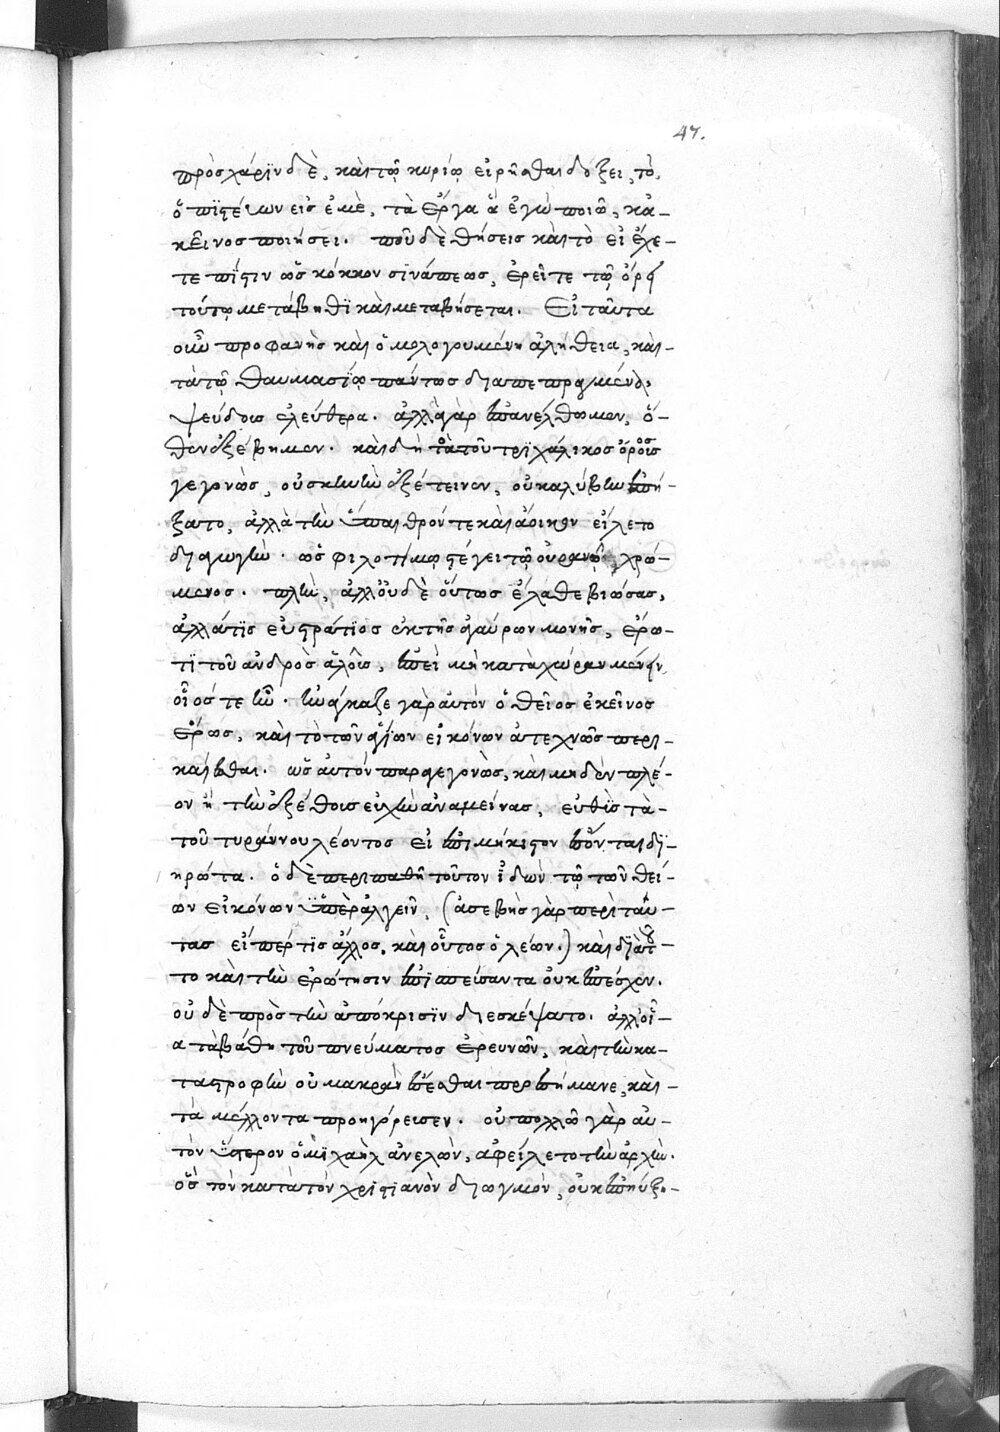 47.
πρὸς χάριν δὲ, καὶ τῷ κυρίῳ εἰρῆσθαι δόξει, τὸ,
ὁ πιστεύων εἰς ἐμὲ, τὰ ἔργα ἃ ἐγὼ ποιῶ, κἀ-
κεῖνος ποιήσει. ποῦ δὲ θήσεις καὶ τὸ εἰ ἔχε-
τε πίστιν ὡς κόκκον σινάπεως, ἐρεῖτε τῷ ὄρει
τούτῳ μετάβηθι καὶ μεταβήσεται. Εἰ ταῦτα
οὖν προφανὴς καὶ ὁμολογουμένη ἀλήθεια, καὶ
τὰ τῷ θαυμασίῳ πάντως διαπεπραγμένα,
ψεύδους ἐλεύθερα. ἀλλὰ γὰρ ἐπανέλθωμεν, ὅ-
θεν ἐξέβημεν. καὶ δὴ τὰ τοῦ τριχάλικος ὄρους
γεγονὼς, οὐ σκηνὴν ἐξέτεινεν, οὐ καλύβην ἐπή-
ξατο, ἀλλὰ τὴν ὕπαιθρόν τε καὶ ἄοικον εἵλετο
διαγωγὴν. ὡς φιλοτίμῳ στέγει τῷ οὐρανῷ, χρώ-
μενος. πλὴν, ἀλλ' οὐδὲ οὕτως ἔλαθε βιώσας,
ἀλλά τις εὐστράτιος ἐκ τῆς ἀγαύρων μονῆς, ἔρω-
τι τοῦ ἀνδρὸς ἁλοὺς, ἐπεὶ μὴ κατὰ χώραν μένειν
οἷός τε ἦν. ἠνάγκαζε γὰρ αὐτὸν ὁ θεῖος ἐκεῖνος
ἔρως, καὶ τὸ τῶν ἁγίων εἰκόνων ἀτεχνῶς περι-
καίεσθαι. ὡς αὐτὸν παραγεγονὼς, καὶ μηδὲν πλέ-
ον ἢ τὴν ἐξ ἔθους εὐχὴν ἀναμείνας, εὐθὺς τὰ
τοῦ τυράννου λέοντος εἰ ἐπιμήκιστον ἔσονται δι-
ηρώτα. ὁ δὲ περιπαθῆ τοῦτον ἰδὼν τῷ τῶν θεί-
ων εἰκόνων ὑπεραλγεῖν, (ἀσεβὴς γὰρ περὶ ταύ-
τας εἴπερ τις ἄλλος, καὶ οὗτος ὁ λέων.) καὶ διὰ τοῦ-
το καὶ τὴν ἐρώτησιν ἐπισπεύσαντα οὐκ ἐπέσχεν.
οὐδὲ πρὸς τὴν ἀπόκρισιν διεσκέψατο. ἀλλ' οἷ-
α τὰ βάθη τοῦ πνεύματος ἐρευνῶν, καὶ τὴν κα-
ταστροφὴν οὐ μακρὰν ἔσεσθαι περιεσήμανε, καὶ
τὰ μέλλοντα προηγόρευσεν. οὐ πολλῷ γὰρ αὐ-
τὸν ὕστερον ὁ μιχαὴλ ἀνελὼν, ἀφείλετο τὴν ἀρχὴν.
ὃς τὸν κατὰ τὸν χριστιανὸν διωγμὸν, οὐκ ἐπηύξη-